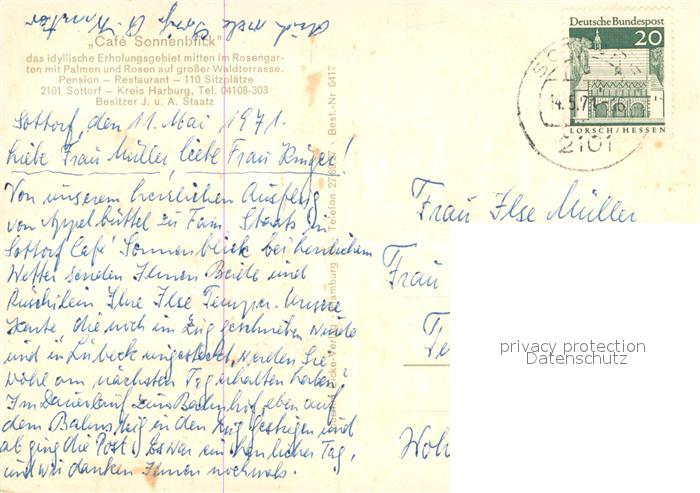 „Café Sonnenblick"
das idyllische Erholungsgebiet mitten im Rosengar-
ten mit Palmen und Rosen auf großer Waldterrasse.
Pension – Restaurant – 110 Sitzplätze
2101 Sottorf – Kreis Harburg, Tel. 04108-303
Besitzer J. u. A. Staatz
Sottorf, den 11. Mai 1971.
Liebe Frau Müller, liebe Frau Krüger!
Von unserem herrlichen Ausflug
von Appelbüttel zu Fam. Staats in
Sottorf Café Sonnenblick bei herrlichem
Wetter senden Ihnen Beide und
Ihre Ilse Unsere
Karte, die noch im Zug geschrieben wurde
und in Lübeck eingesteckt, werden Sie
wohl am nächsten Tag erhalten haben?
Im Dauerlauf zum Bahnhof, eben auf
dem Bahnsteig in den Zug gestiegen und
ab ging die Post. Es war ein herrlicher Tag,
und wir danken Ihnen nochmals.
Auch viele Grüße
Best.-Nr 6417
Hamburg Telefon
Deutsche Bundespost
20
LORSCH/HESSEN
14.5.71
2101
Frau Ilse Müller
Frau
privacy protection
Datenschutz